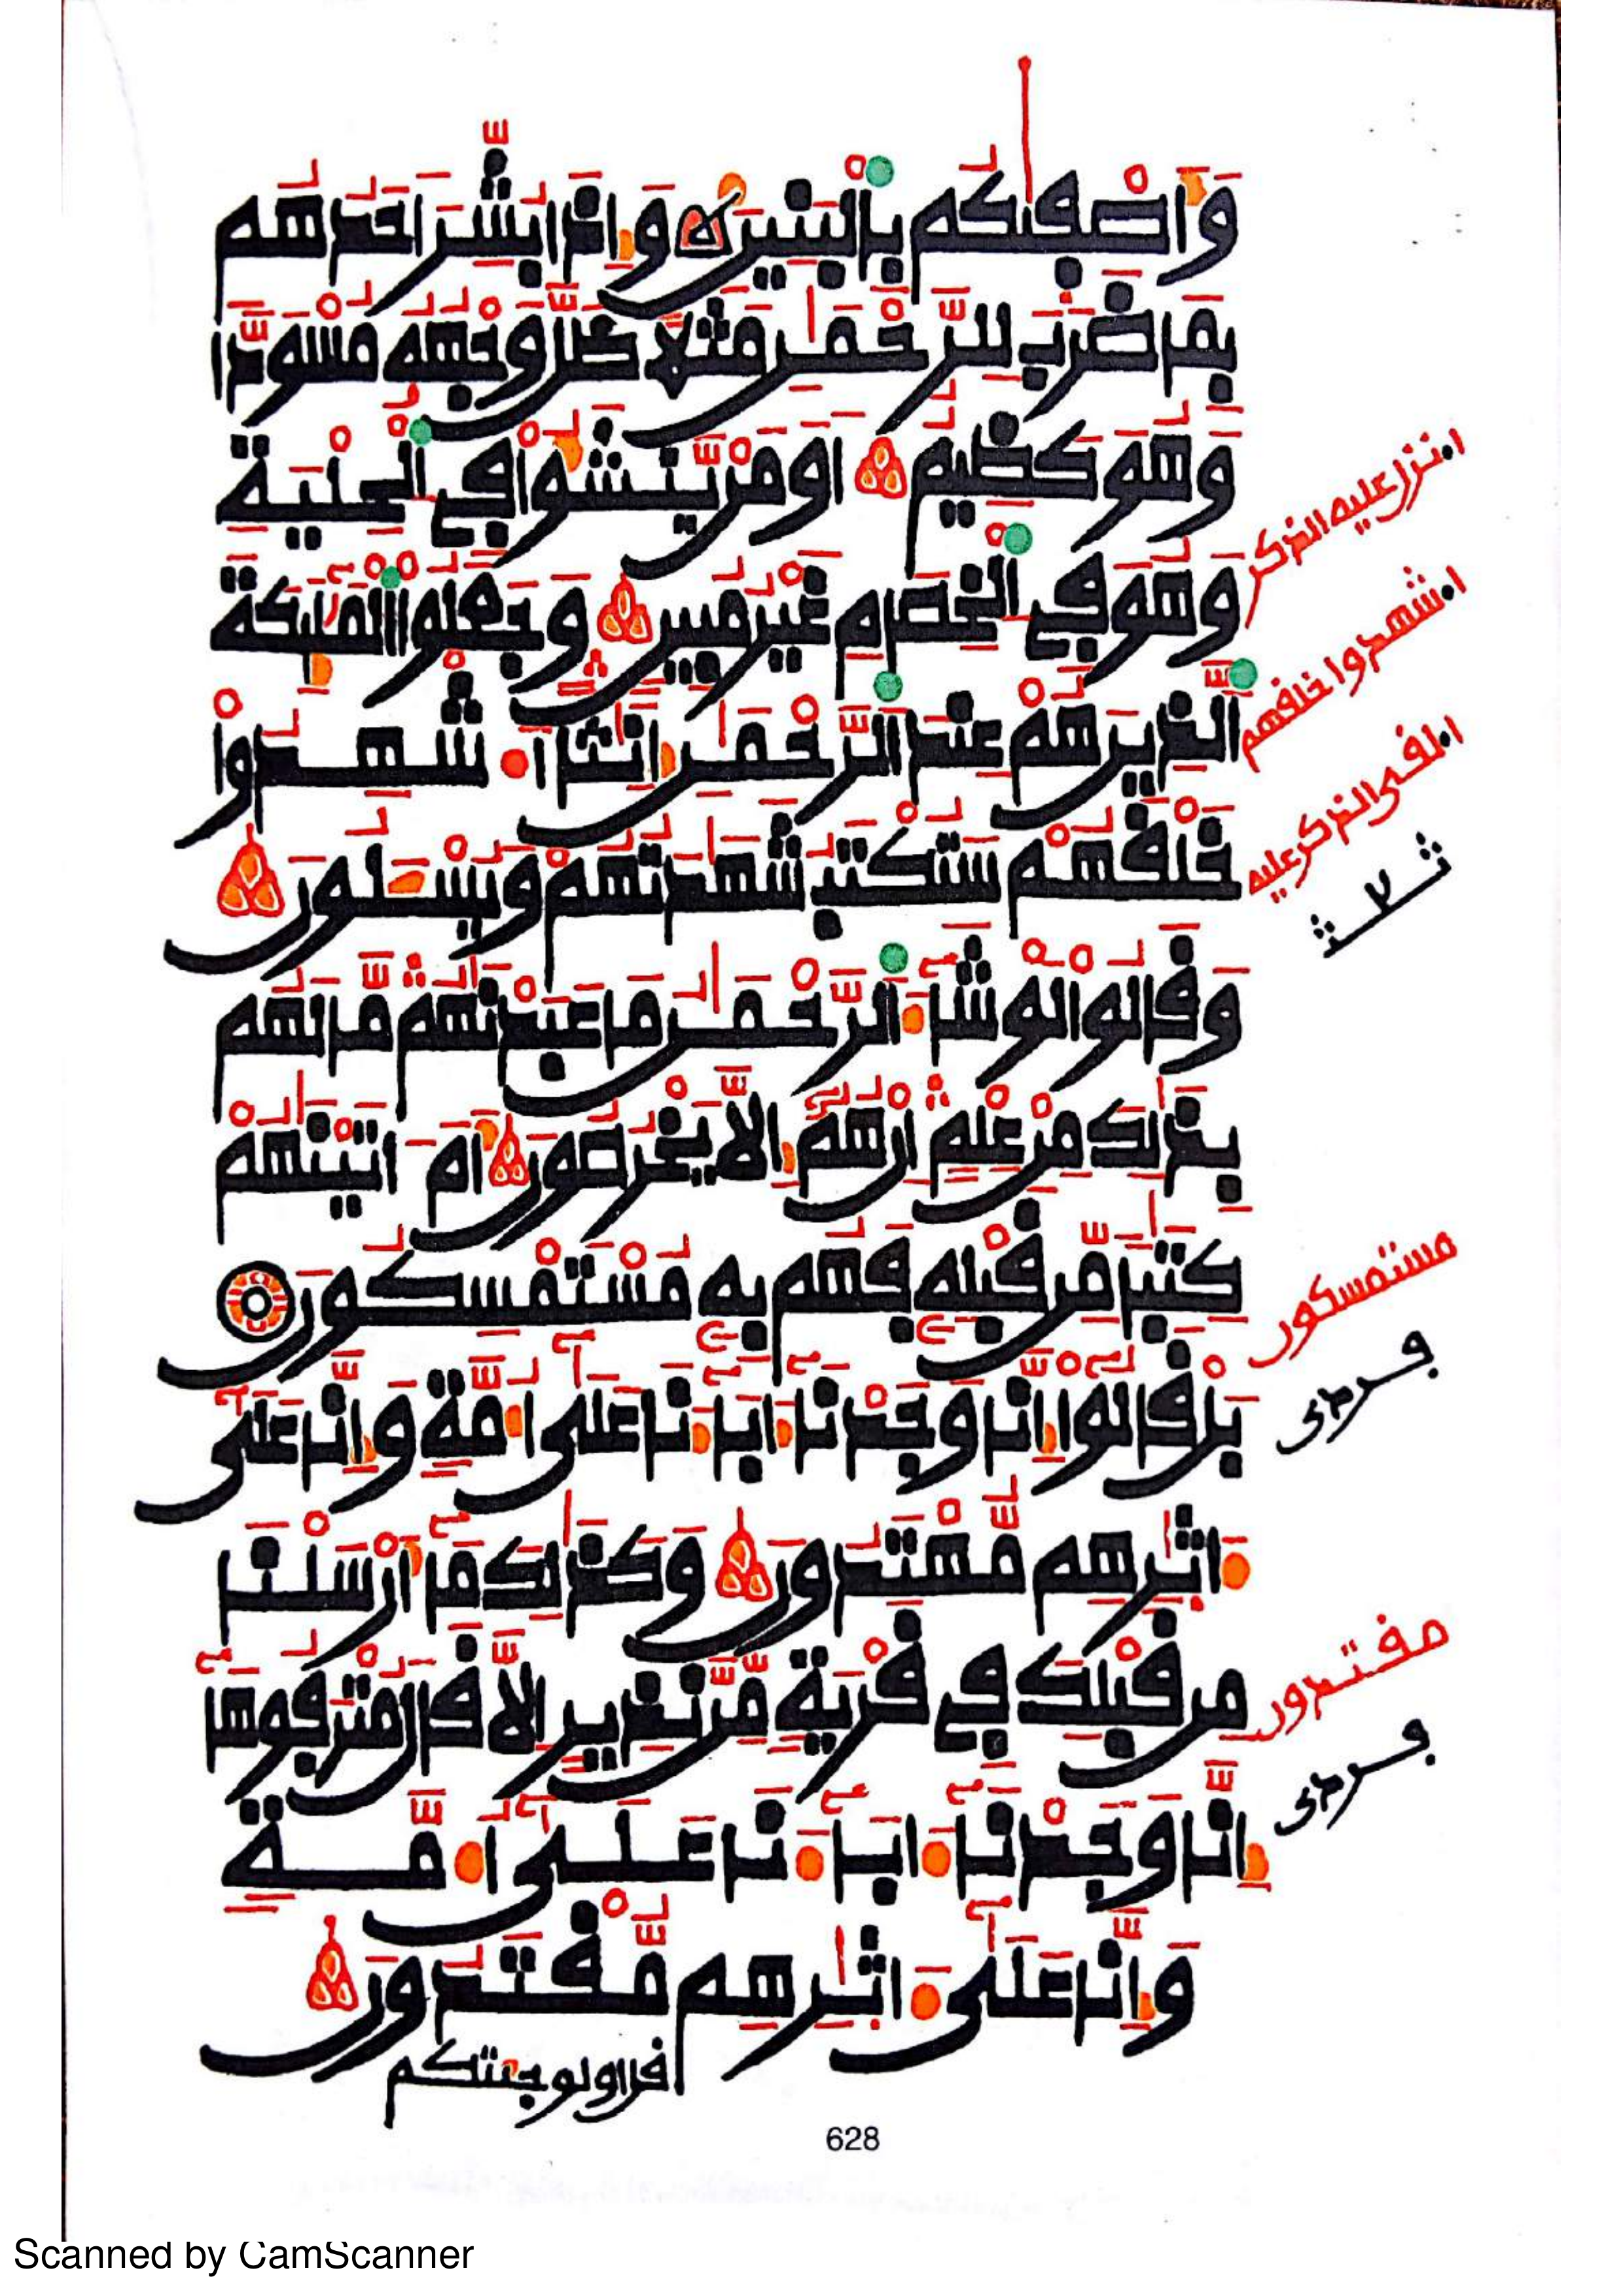 وأصفيكم بالبنين وإذا بشر أحدهم
بما ضرب للرحمن مثلا ظل وجهه مسودا
وهو كظيم أومن ينشؤا في الحلية
وهو في الخصام غير مبين وجعلوا الملئكة
الذين هم عند الرحمن إنثا أشهدوا
خلقهم ستكتب شهدتهم ويسئلون
وقالوا لو شاء الرحمن ما عبدنهم ما لهم
بذلك من علم إن هم إلا يخرصون أم اتينهم
كتبا من قبله فهم به مستمسكون
بل قالوا إنا وجدنا اباءنا على أمة وإنا على
اثرهم مهتدون وكذلك ما أرسلنا
من قبلك في قرية من نذير إلا قال مترفوها
إنا وجدنا اباءنا على أمة
وإنا على اثرهم مقتدون
قال اولو جئتكم
اءنزل عليه الذكر
اءشهدوا خلقهم
اءلقى الذكر عليه
مستمسكون
فردى
مقتدون
فردى
628
Scanned by CamScanner